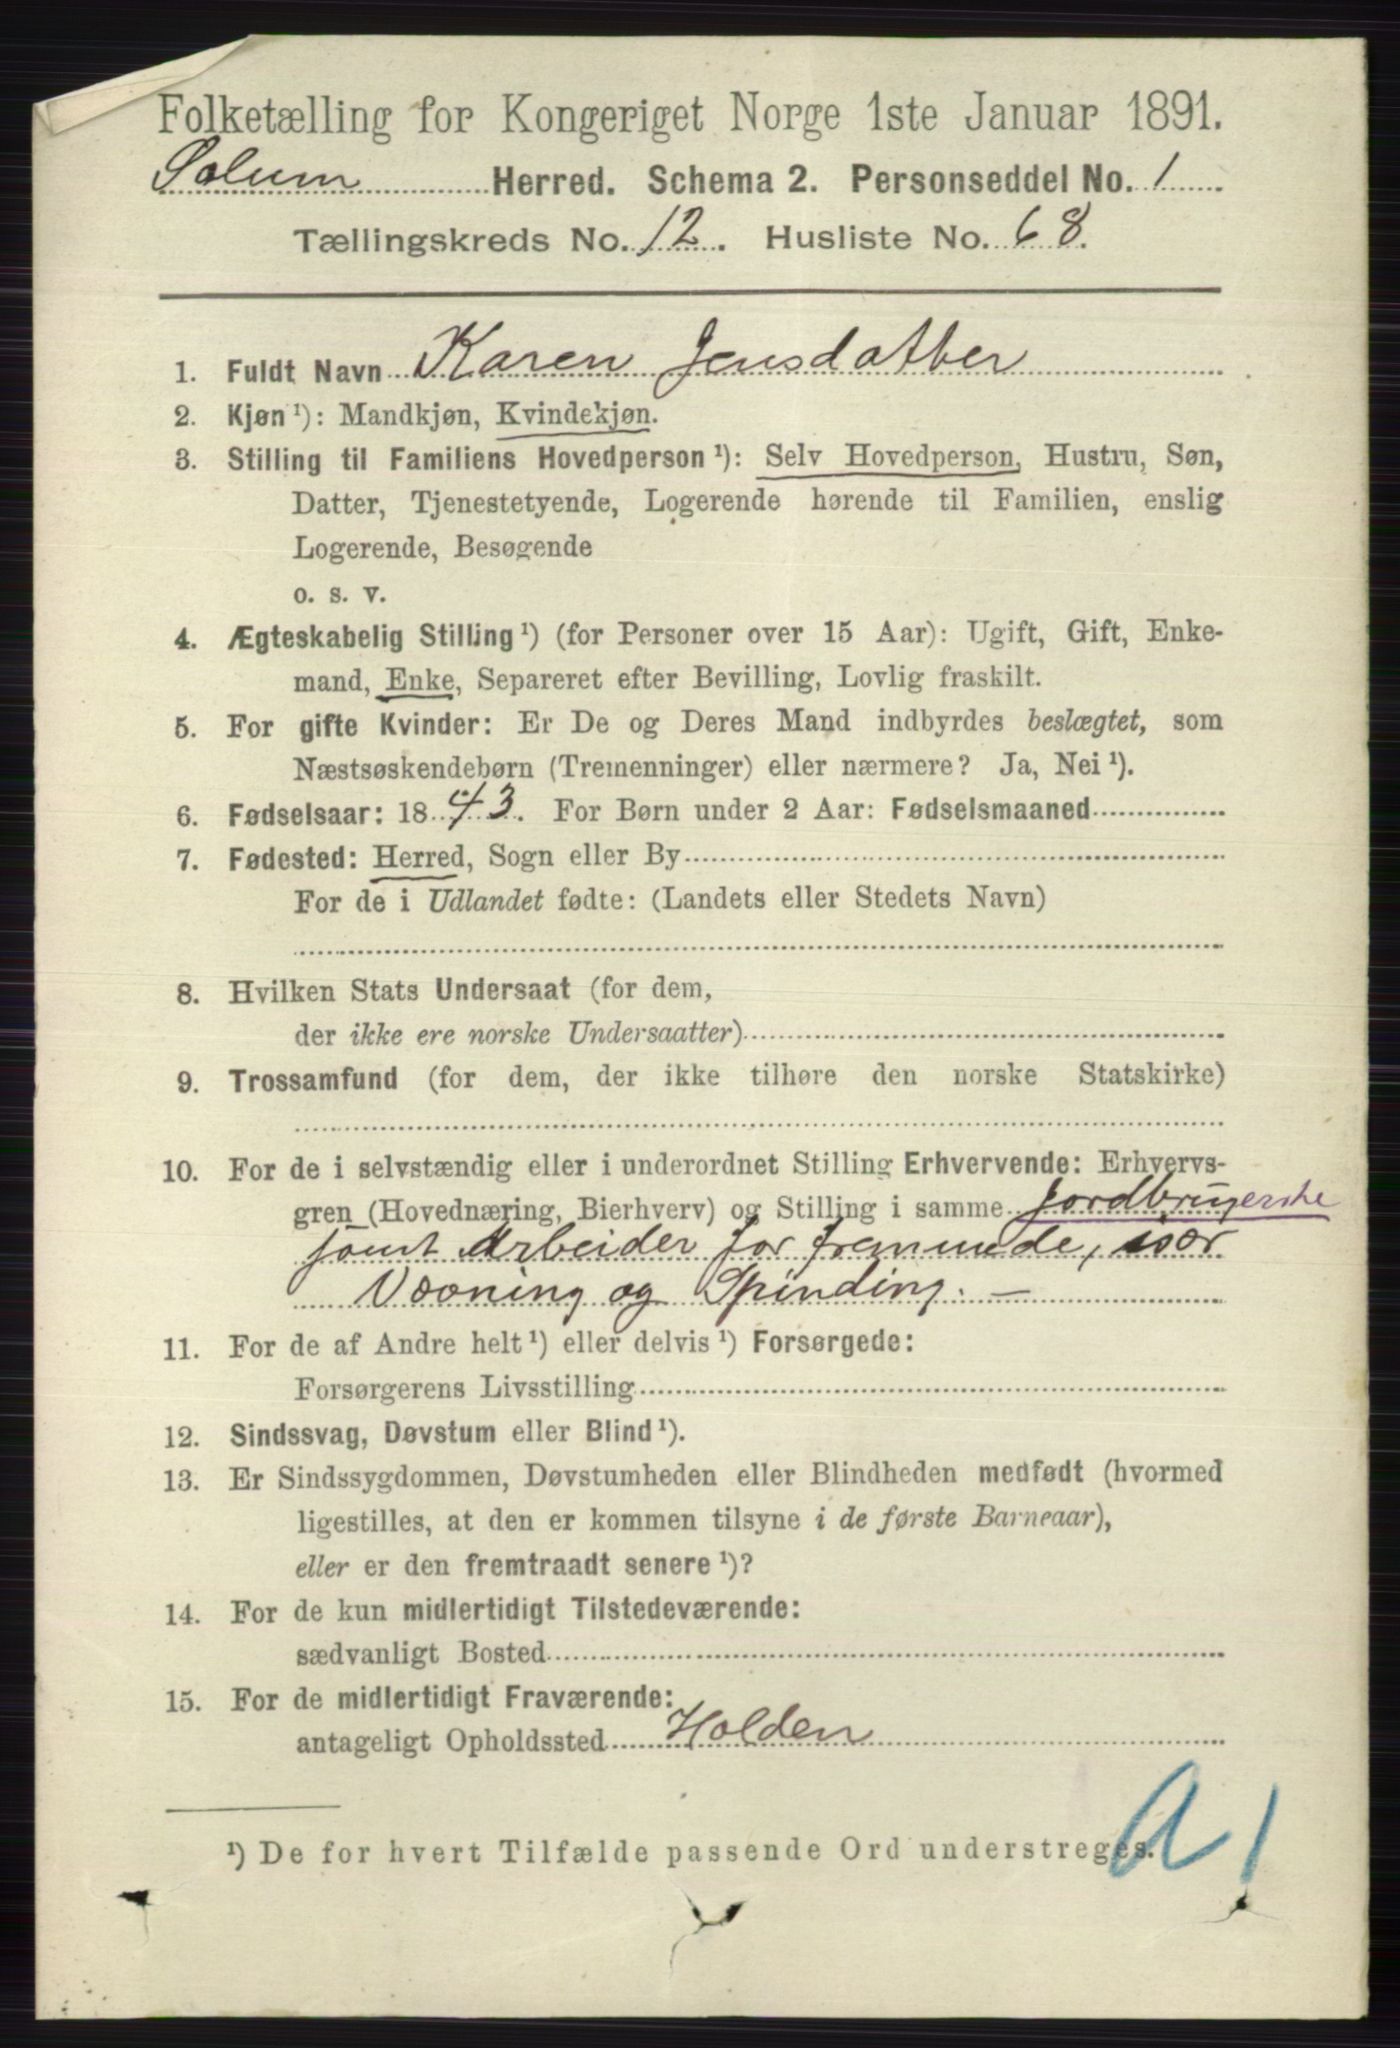 Folketælling for Kongeriget Norge 1ste Januar 1891.
Solum Herred. Schema 2. Personseddel No. 1
Tællingskreds No. 12. Husliste No. 68.
1. Fuldt Navn Karen Jensdatter
2. Kjøn ¹): Mandkjøn, Kvindekjøn.
3. Stilling til Familiens Hovedperson ¹): Selv Hovedperson, Hustru, Søn,
Datter, Tjenestetyende, Logerende hørende til Familien, enslig
Logerende, Besøgende
o. s. v.
4. Ægteskabelig Stilling ¹) (for Personer over 15 Aar): Ugift, Gift, Enke-
mand, Enke, Separeret efter Bevilling, Lovlig fraskilt.
5. For gifte Kvinder: Er De og Deres Mand indbyrdes beslægtet, som
Næstsøskendebørn (Tremenninger) eller nærmere? Ja, Nei ¹).
6. Fødselsaar: 1843. For Børn under 2 Aar: Fødselsmaaned
7. Fødested: Herred, Sogn eller By
For de i Udlandet fødte: (Landets eller Stedets Navn)
8. Hvilken Stats Undersaat (for dem,
der ikke ere norske Undersaatter)
9. Trossamfund (for dem, der ikke tilhøre den norske Statskirke)
10. For de i selvstændig eller i underordnet Stilling Erhvervende: Erhvervs-
gren (Hovednæring, Bierhverv) og Stilling i samme Jordbrugerske
samt Arbeider for fremmede, især
Vævning og Spinding. —
11. For de af Andre helt ¹) eller delvis ¹) Forsørgede:
Forsørgerens Livsstilling
12. Sindssvag, Døvstum eller Blind ¹).
13. Er Sindssygdommen, Døvstumheden eller Blindheden medfødt (hvormed
ligestilles, at den er kommen tilsyne i de første Barneaar),
eller er den fremtraadt senere ¹)?
14. For de kun midlertidigt Tilstedeværende:
sædvanligt Bosted
15. For de midlertidigt Fraværende:
antageligt Opholdssted Holden
¹) De for hvert Tilfælde passende Ord understreges.
a 1